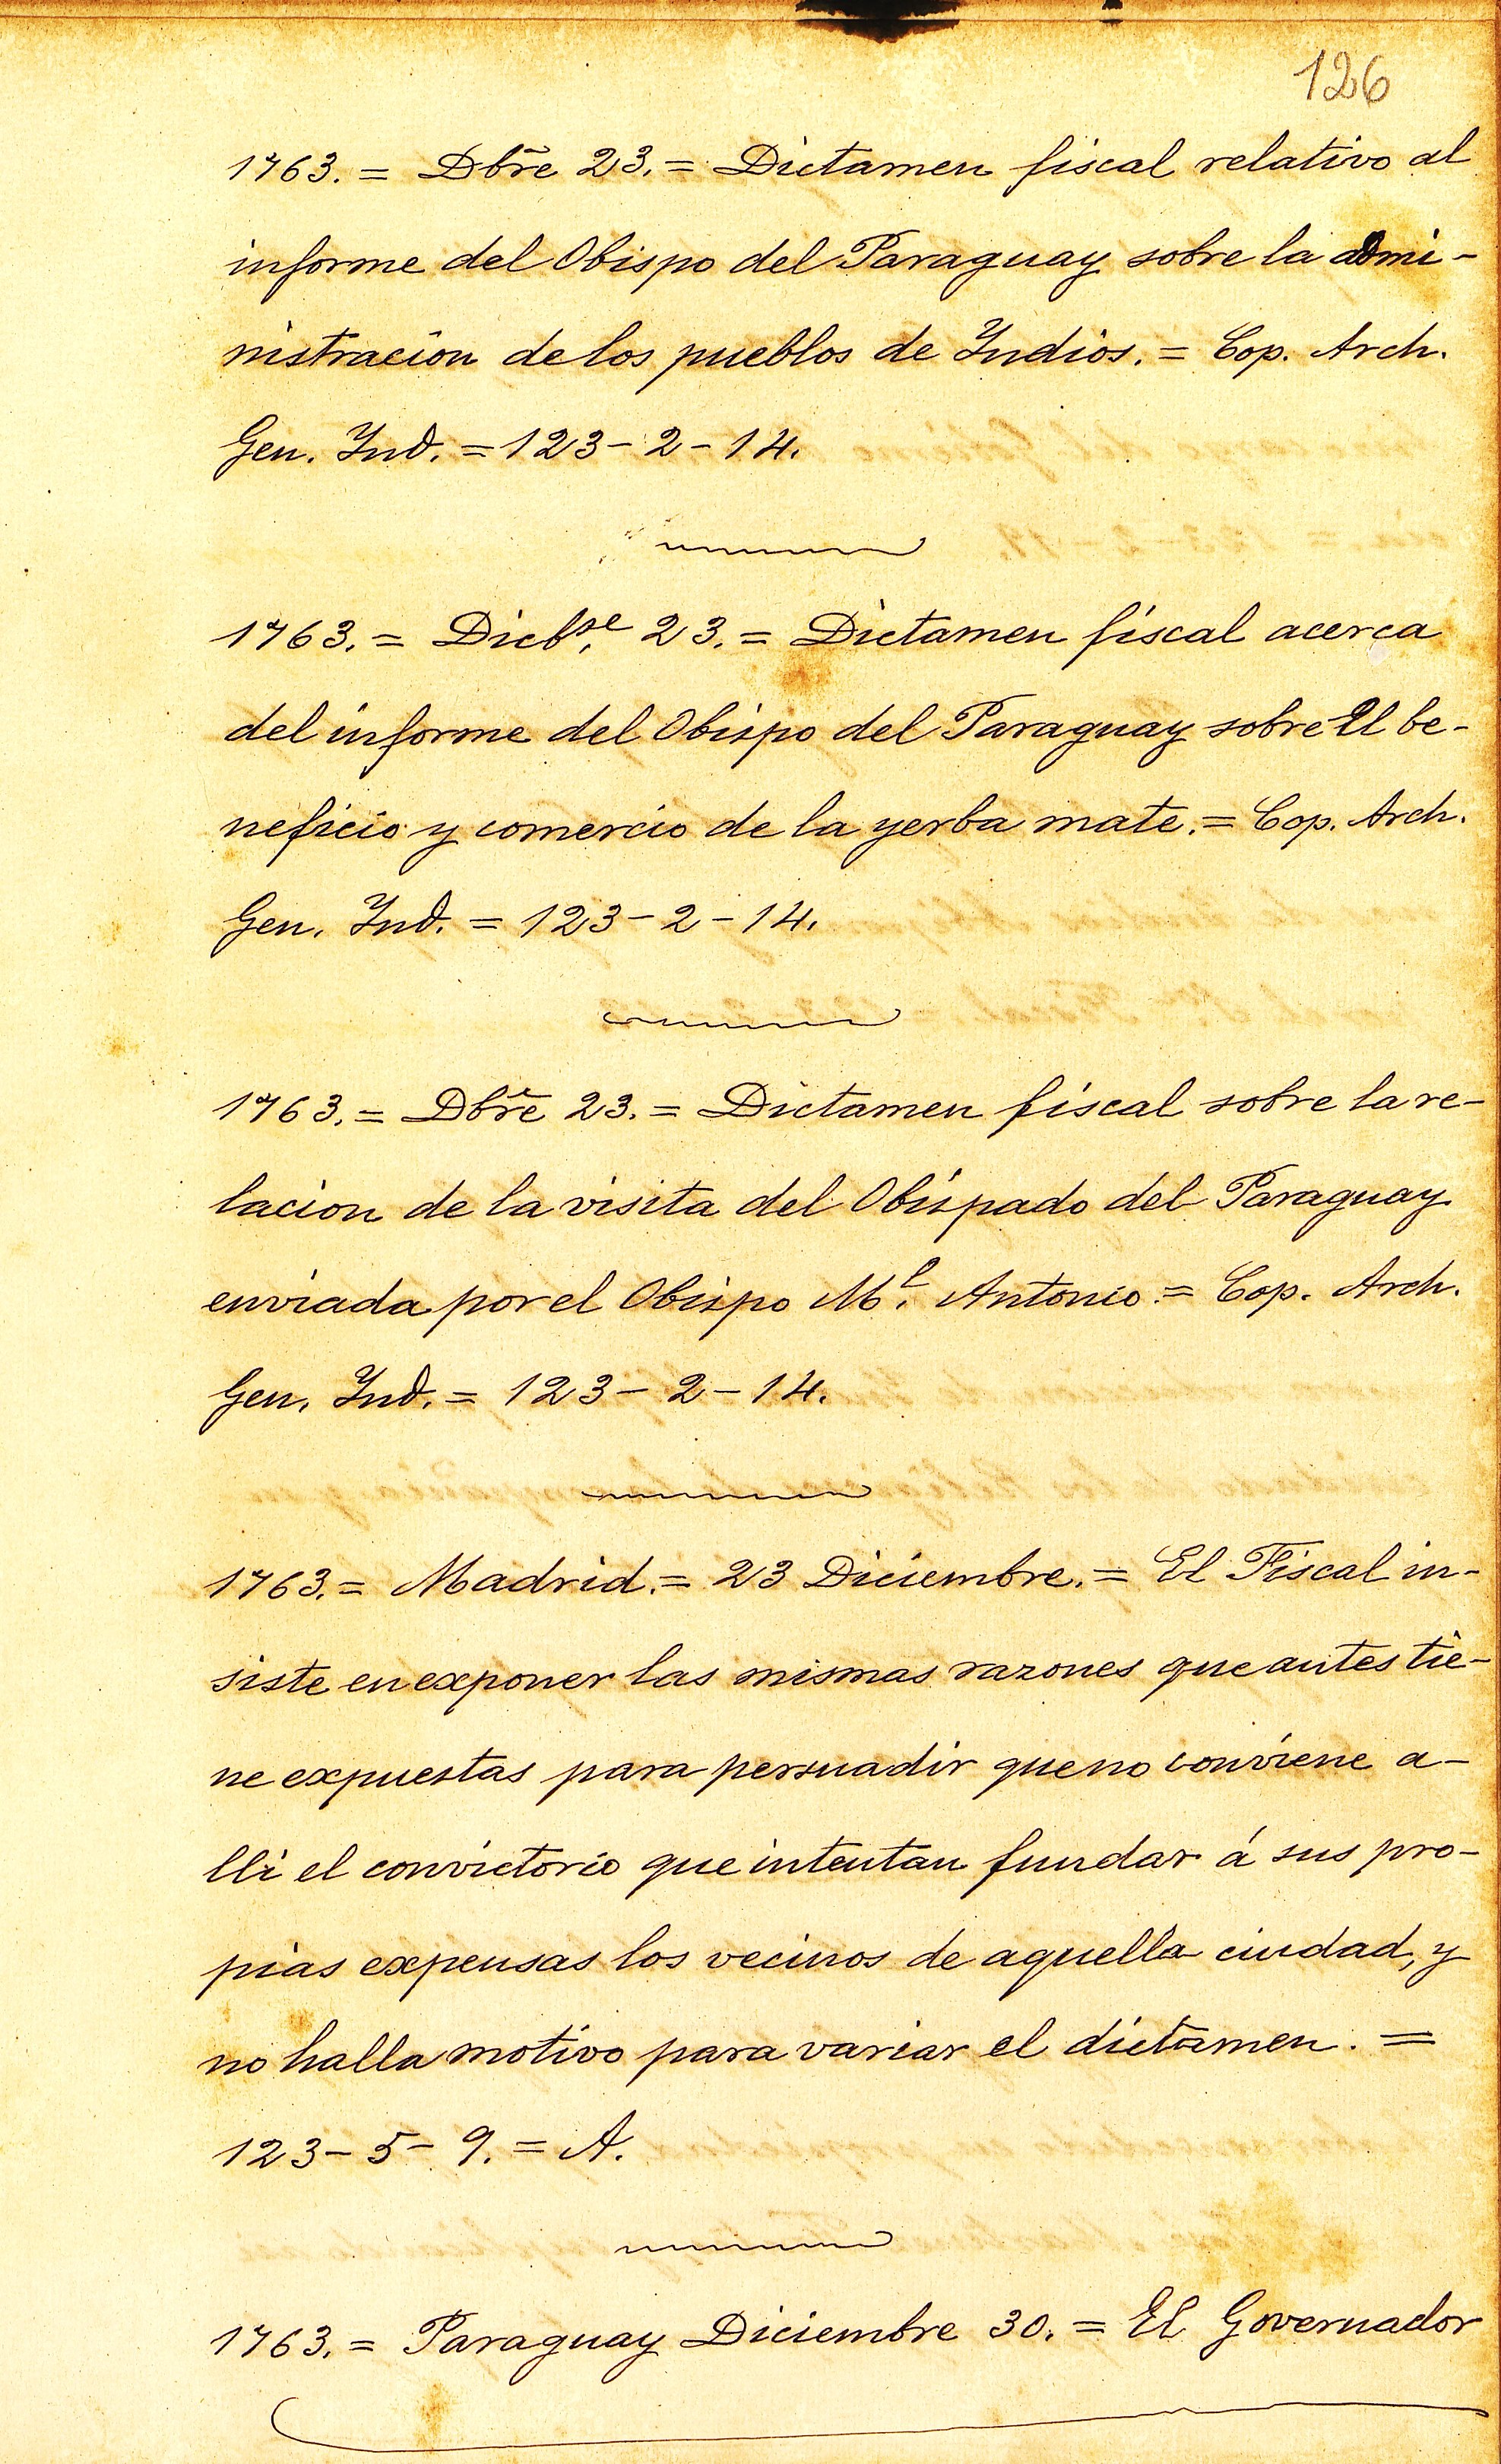 126
1763. = Dbr̃e 23. = Dictamen fiscal relativo al
informe del Obispo del Paraguay sobre la admi-
nistracion de los pueblos de Indios. = Cop. Arch.
Gen. Ind. = 123-2-14.
1763. = Dicbre. 23. = Dictamen fiscal acerca
del informe del Obispo del Paraguay sobre el be-
neficio y comercio de la yerba mate. = Cop. Arch.
Gen. Ind. = 123-2-14.
1763. = Dbr̃e 23. = Dictamen fiscal sobre la re-
lacion de la visita del Obispado del Paraguay
enviada por el Obispo Ml. Antonio = Cop. Arch.
Gen. Ind. = 123-2-14.
1763. = Madrid. = 23 Diciembre. = El Fiscal in-
siste en exponer las mismas razones que antes tie-
ne expuestas para persuadir que no conviene a-
lli el convictorio que intentan fundar á sus pro-
pias expensas los vecinos de aquella ciudad, y
no halla motivo para variar el dictamen. =
123-5-9. = A.
1763. = Paraguay Diciembre 30. = El Governador